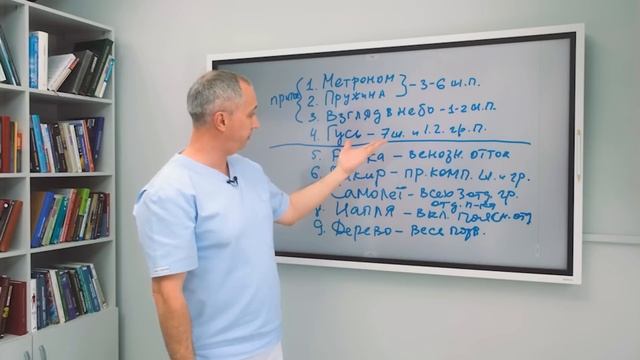 приток
1. Метроном
2. Пружина
– 3-6 ш.п.
3. Взгляд в небо – 1-2 ш.п.
4. Гусь – 7 ш. и 1.2. гр. п.
5. – венозн. отток
6. – пр. комп. ш. и гр.
Самолёт – всех 3 отд. гр.
8. Цапля – вкл. поясн. отд.
9. Дерево – весь позв.